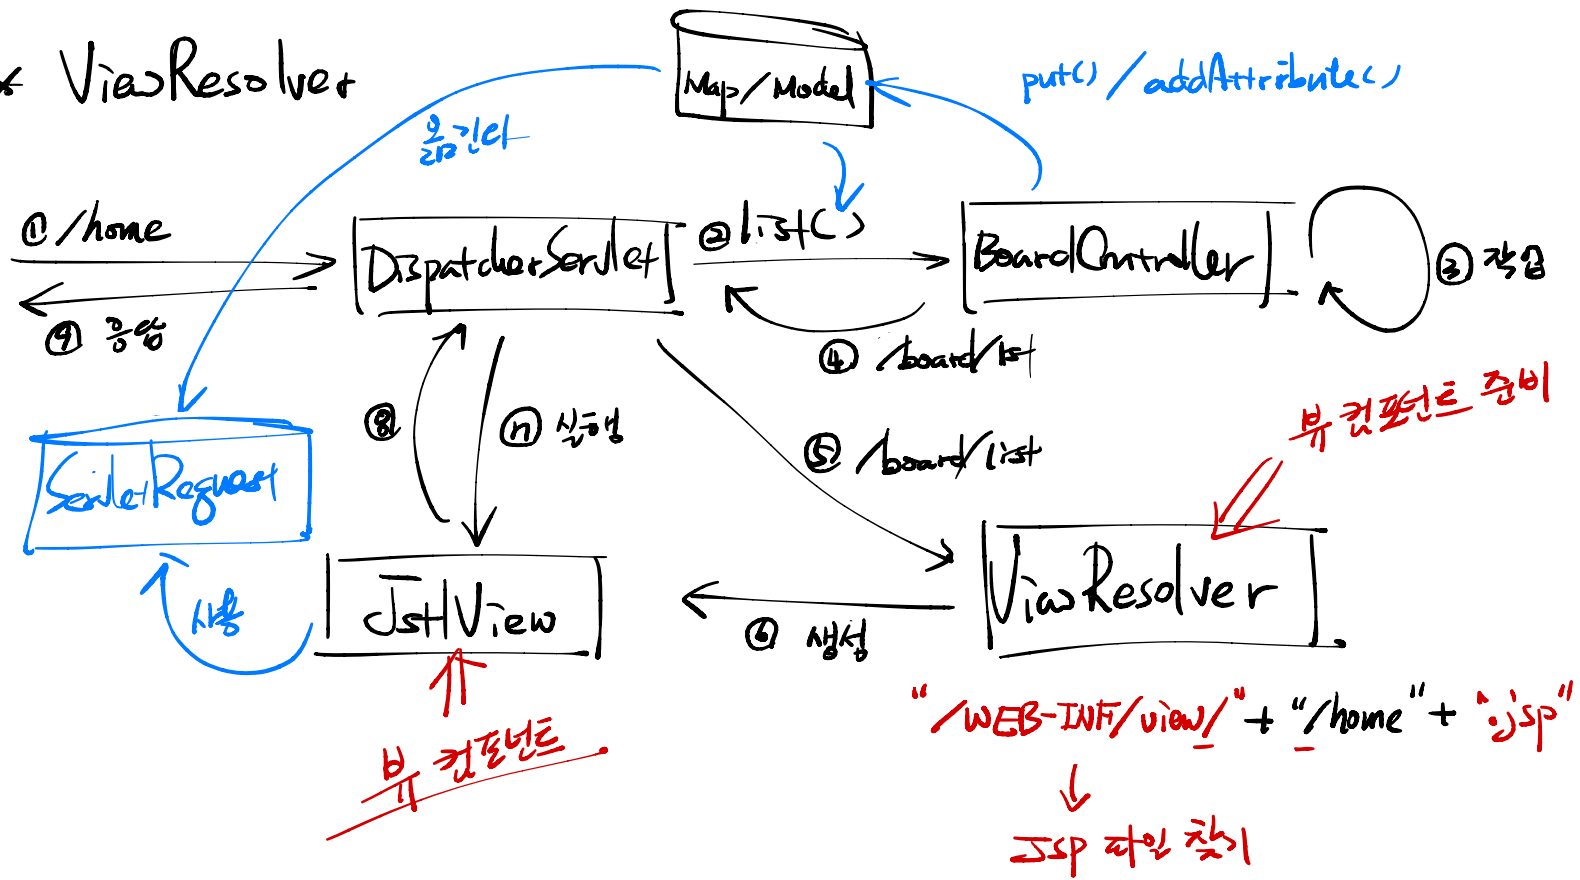 * ViewResolver
Map/Model
put() / addAttribute()
옮긴다
① /home
DispatcherServlet
② list()
BoardController
③ 작업
⑨ 응답
④ /board/list
뷰 컴포넌트 준비
⑧
⑦ 실행
⑤ /board/list
ServletRequest
사용
JstlView
⑥ 생성
ViewResolver
"/WEB-INF/view/" + "/home" + ".jsp"
뷰 컴포넌트
JSP 파일 찾기